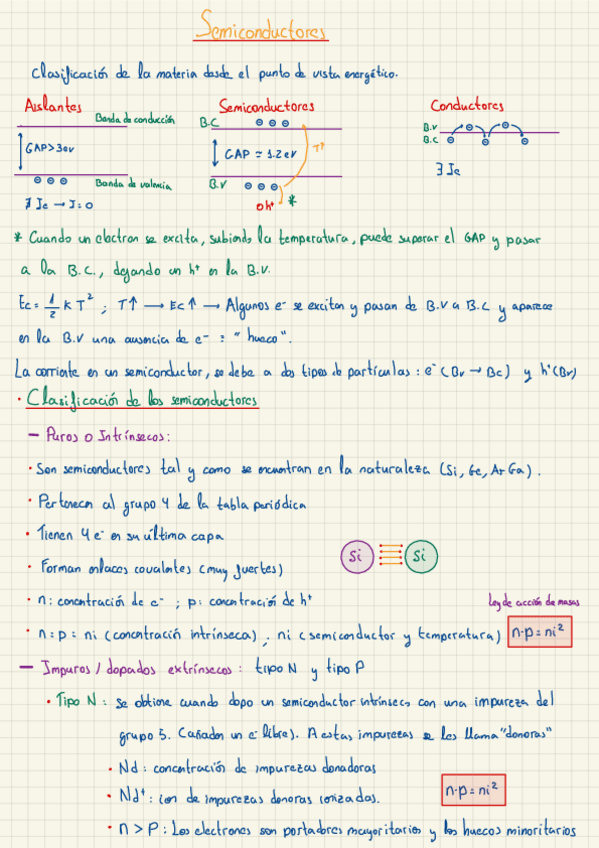 Semiconductores
Clasificación de la materia desde el punto de vista energético.
Aislantes Semiconductores Conductores
Banda de conducción B.C B.V
B.C
GAP>3eV GAP = 1.2eV T↑
Banda de valencia B.V
0 h⁺ *
∄ Ic → I=0 ∃ Ic
* Cuando un electron se excita, subiendo la temperatura, puede superar el GAP y pasar
a la B.C., dejando un h⁺ en la B.V.
Ec = 1/2 K T² ; T↑ → Ec↑ → Algunos e⁻ se excitan y pasan de B.V a B.C y aparece
en la B.V una ausencia de e⁻ : "hueco".
La corriente en un semiconductor, se debe a dos tipos de partículas : e⁻ (Bv → Bc) y h⁺(Bv)
· Clasificación de los semiconductores
— Puros o Intrínsecos:
· Son semiconductores tal y como se encuentran en la naturaleza (Si, Ge, Ar Ga).
· Pertenecen al grupo 4 de la tabla periódica
· Tienen 4 e⁻ en su última capa
Si Si
· Forman enlaces covalentes (muy fuertes)
· n: concentración de e⁻ ; p: concentración de h⁺
Ley de acción de masas
· n=p = ni (concentración intrínseca), ni (semiconductor y temperatura) n·p = ni²
— Impuros / dopados extrínsecos : tipo N y tipo P
· Tipo N : Se obtiene cuando dopo un semiconductor intrínseco con una impureza del
grupo 5. (añaden un e⁻ libre). A estas impurezas se les llama "donoras"
· Nd : concentración de impurezas donadoras
· Nd⁺ : ion de impurezas donoras ionizadas. n·p = ni²
· n > P : Los electrones son portadores mayoritarios y los huecos minoritarios